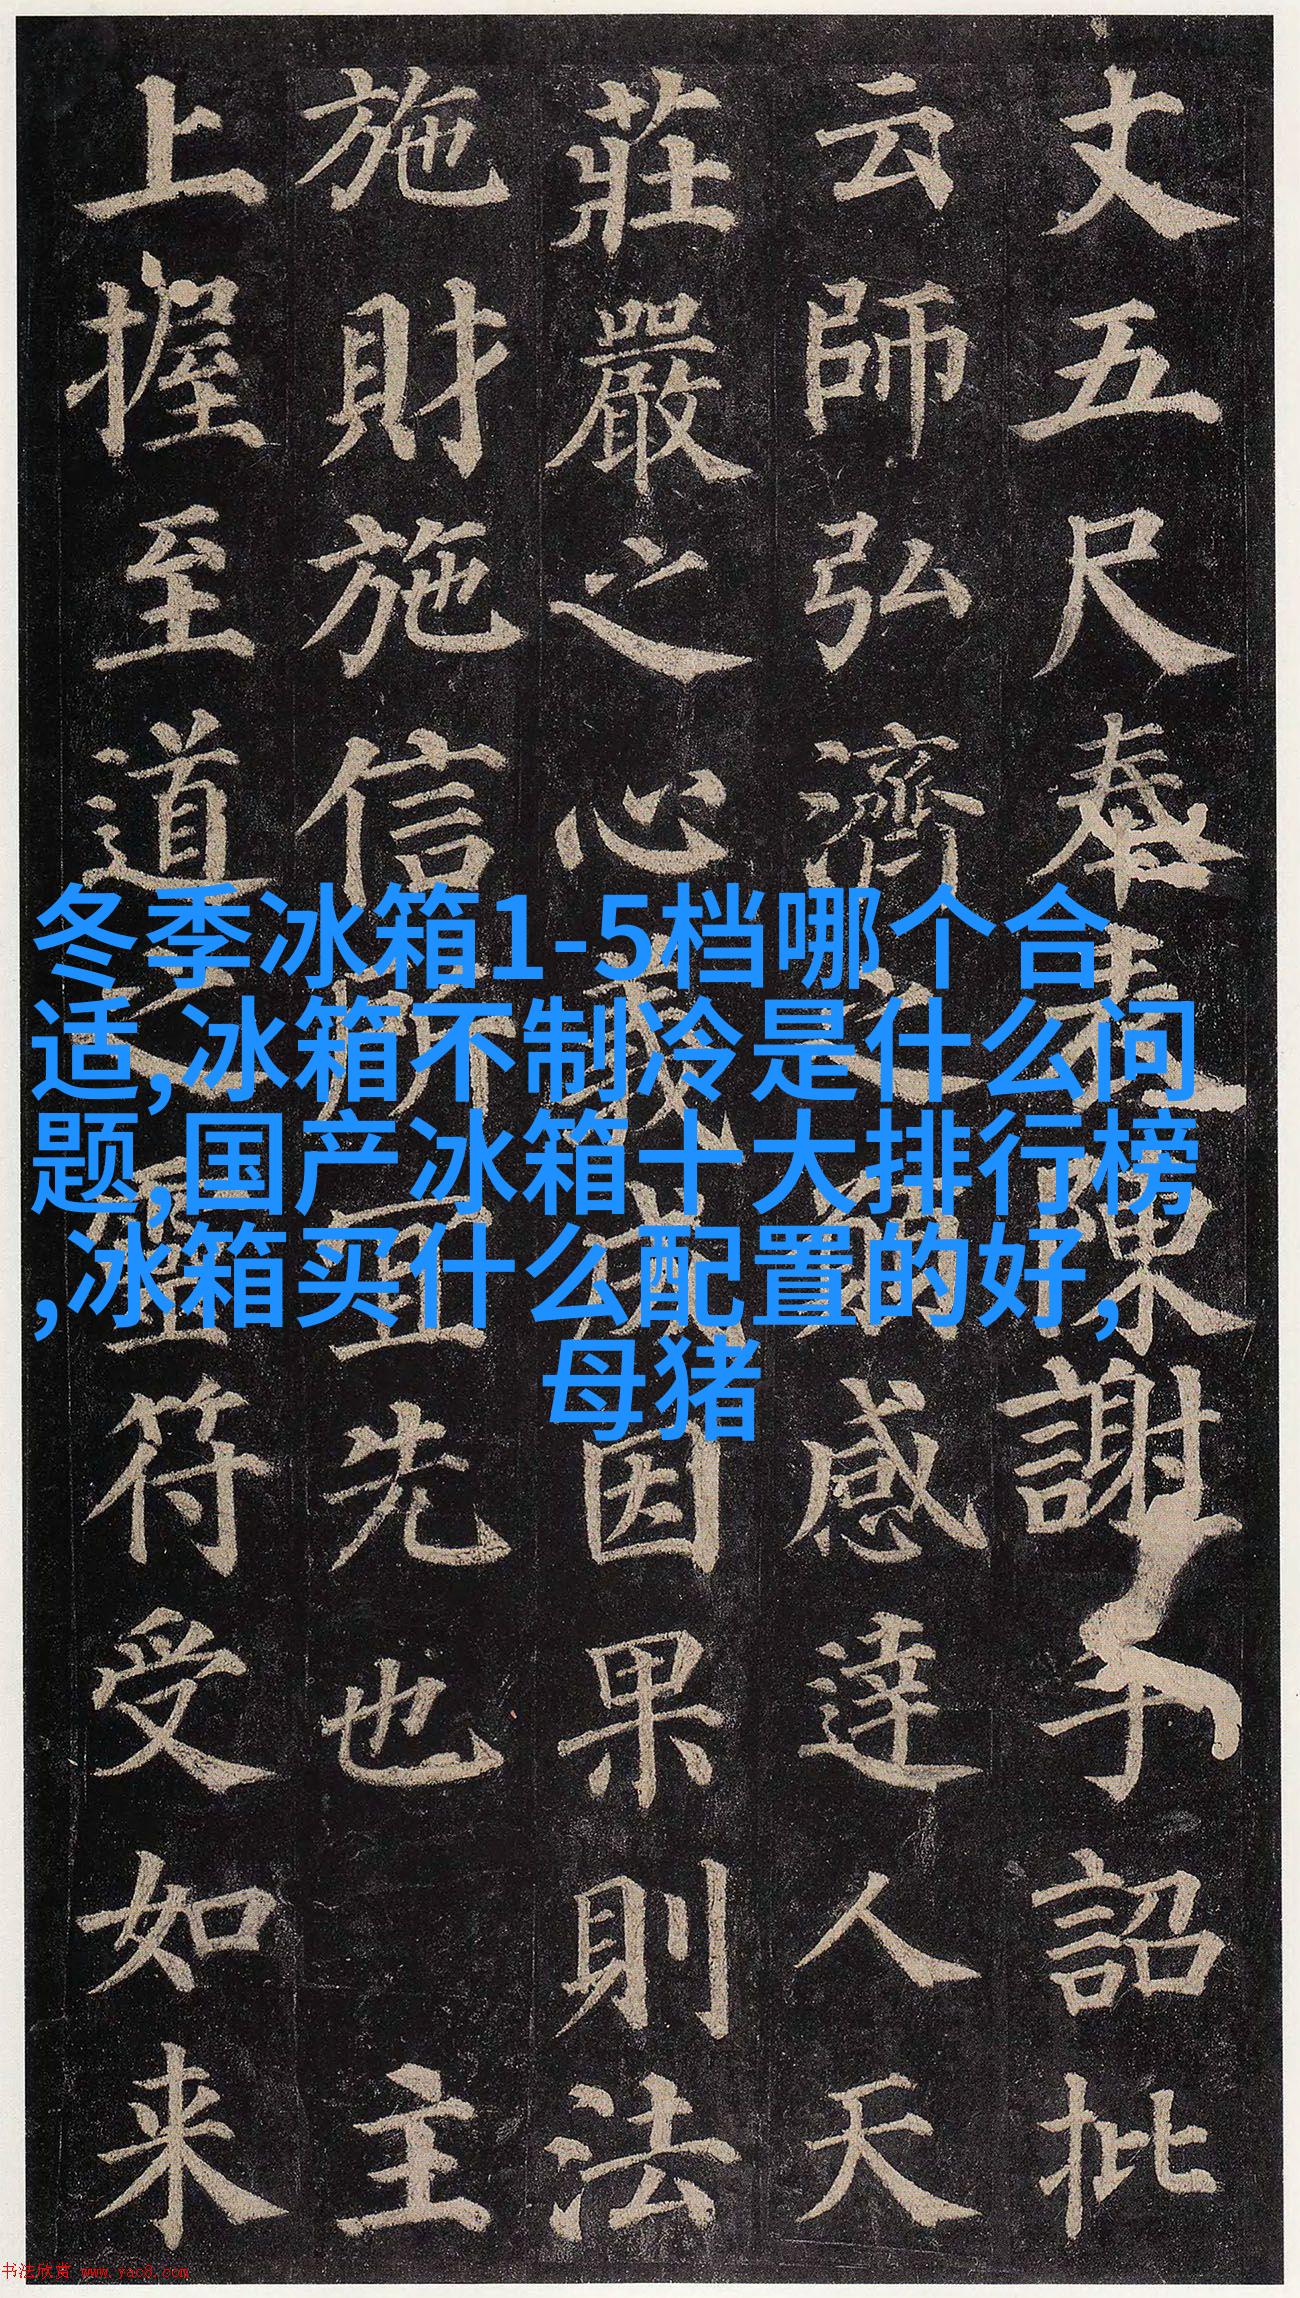 丈五尺奉表陳謝手詔批
云師弘濟之感達人天
莊嚴之心因果則法
施財施信所宜先也主
上握至道之靈符受如来
冬季冰箱1-5档哪个合
适,冰箱不制冷是什么问
题,国产冰箱十大排行榜
,冰箱买什么配置的好,
母猪
书法欣赏 www.yac8.com